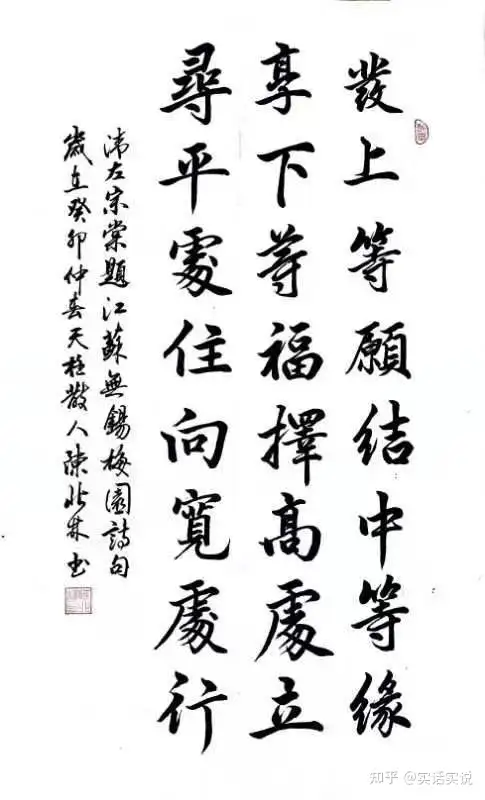 發上等願結中等緣
享下等福擇高處立
尋平處住向寬處行
清左宗棠題江蘇無錫梅園詩句
歲在癸卯仲春天柱散人陳北林书
知乎 @实话实说